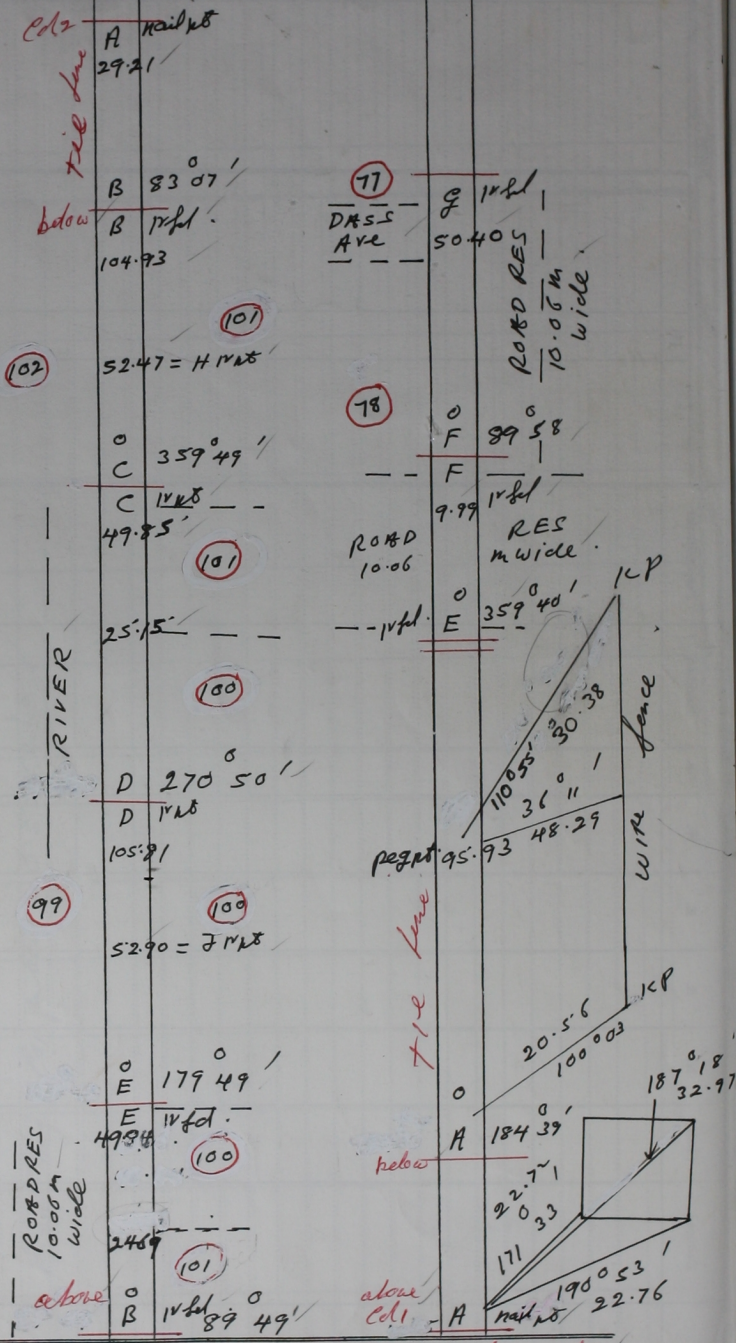 Cd2 A nail pt
29.21
tie line
B 83°07'
below B Ir fd.
104.93
101
102 52.47 = H Ir pt
0
C 359°49'
C Ir pt
49.85
101
25.15
RIVER
100
D 270°50'
D Ir pt
105.81
99 100
52.90 = J Ir pt
0
E 179°49'
E Ir fd.
49.84
100
ROAD RES
10.06m
wide
24.69
101
0
above B Ir fd 89°49'
77 G Ir fd
DASS
Ave 50.40
ROAD RES
10.06m
wide
78
0
F 89°58'
F Ir fd
9.99
ROAD RES
10.06 m wide.
0
Ir fd E 359°40'
KP
110°55' 30.38
36°11'
48.29
peg pt 95.93
wire fence
tie line
KP
20.56
100°03
0
A 184°39'
below
187°18'
32.97
22.71
171°33
190°53'
22.76
above
Cd1 A nail pt